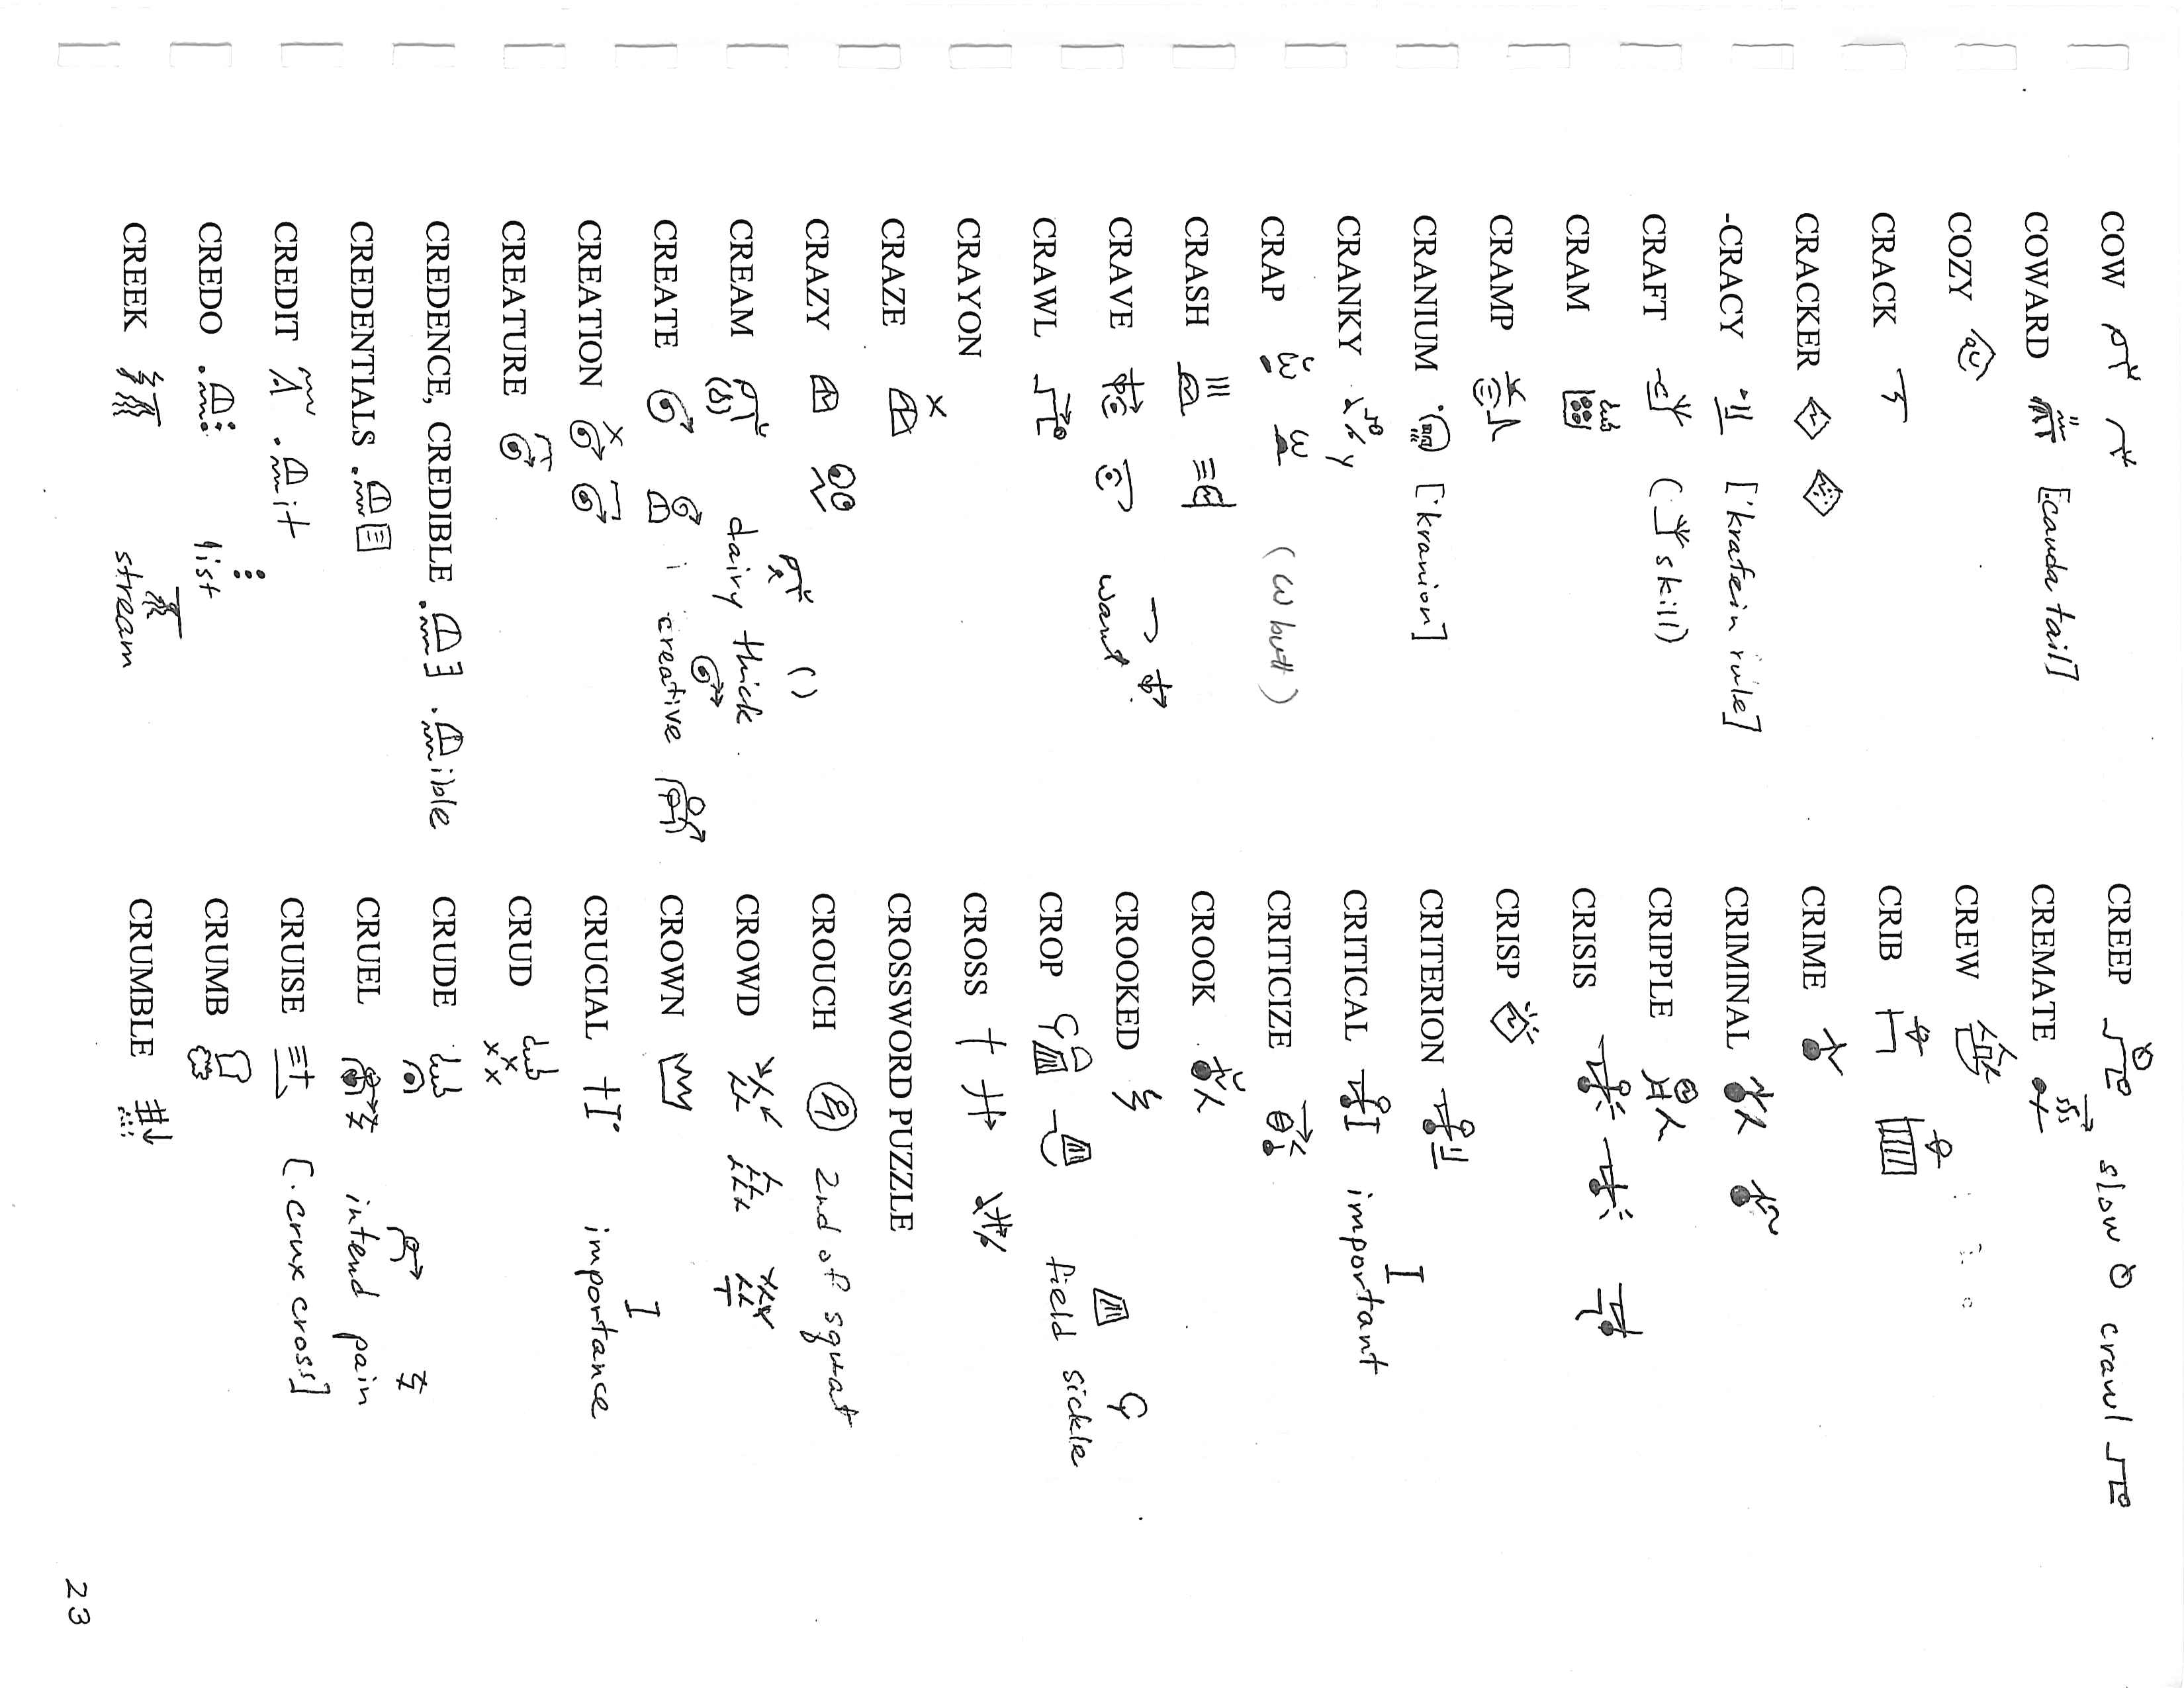 COW
COWARD [cauda tail]
COZY
CRACK
CRACKER
-CRACY [·kratein rule]
CRAFT ( skill)
CRAM
CRAMP
CRANIUM [·kranion]
CRANKY y
CRAP (ω butt)
CRASH
CRAVE want
CRAWL
CRAYON
CRAZE
CRAZY
CREAM dairy thick
CREATE i creative
CREATION
CREATURE
CREDENCE, CREDIBLE ible
CREDENTIALS
CREDIT it
CREDO list
CREEK stream
CREEP slow crawl
CREMATE
CREW
CRIB
CRIME
CRIMINAL
CRIPPLE
CRISIS
CRISP
CRITERION
CRITICAL important
CRITICIZE
CROOK
CROOKED
CROP field sickle
CROSS
CROSSWORD PUZZLE
CROUCH 2nd of squat
CROWD
CROWN
CRUCIAL importance
CRUD
CRUDE
CRUEL intend pain
CRUISE [·crux cross]
CRUMB
CRUMBLE
23